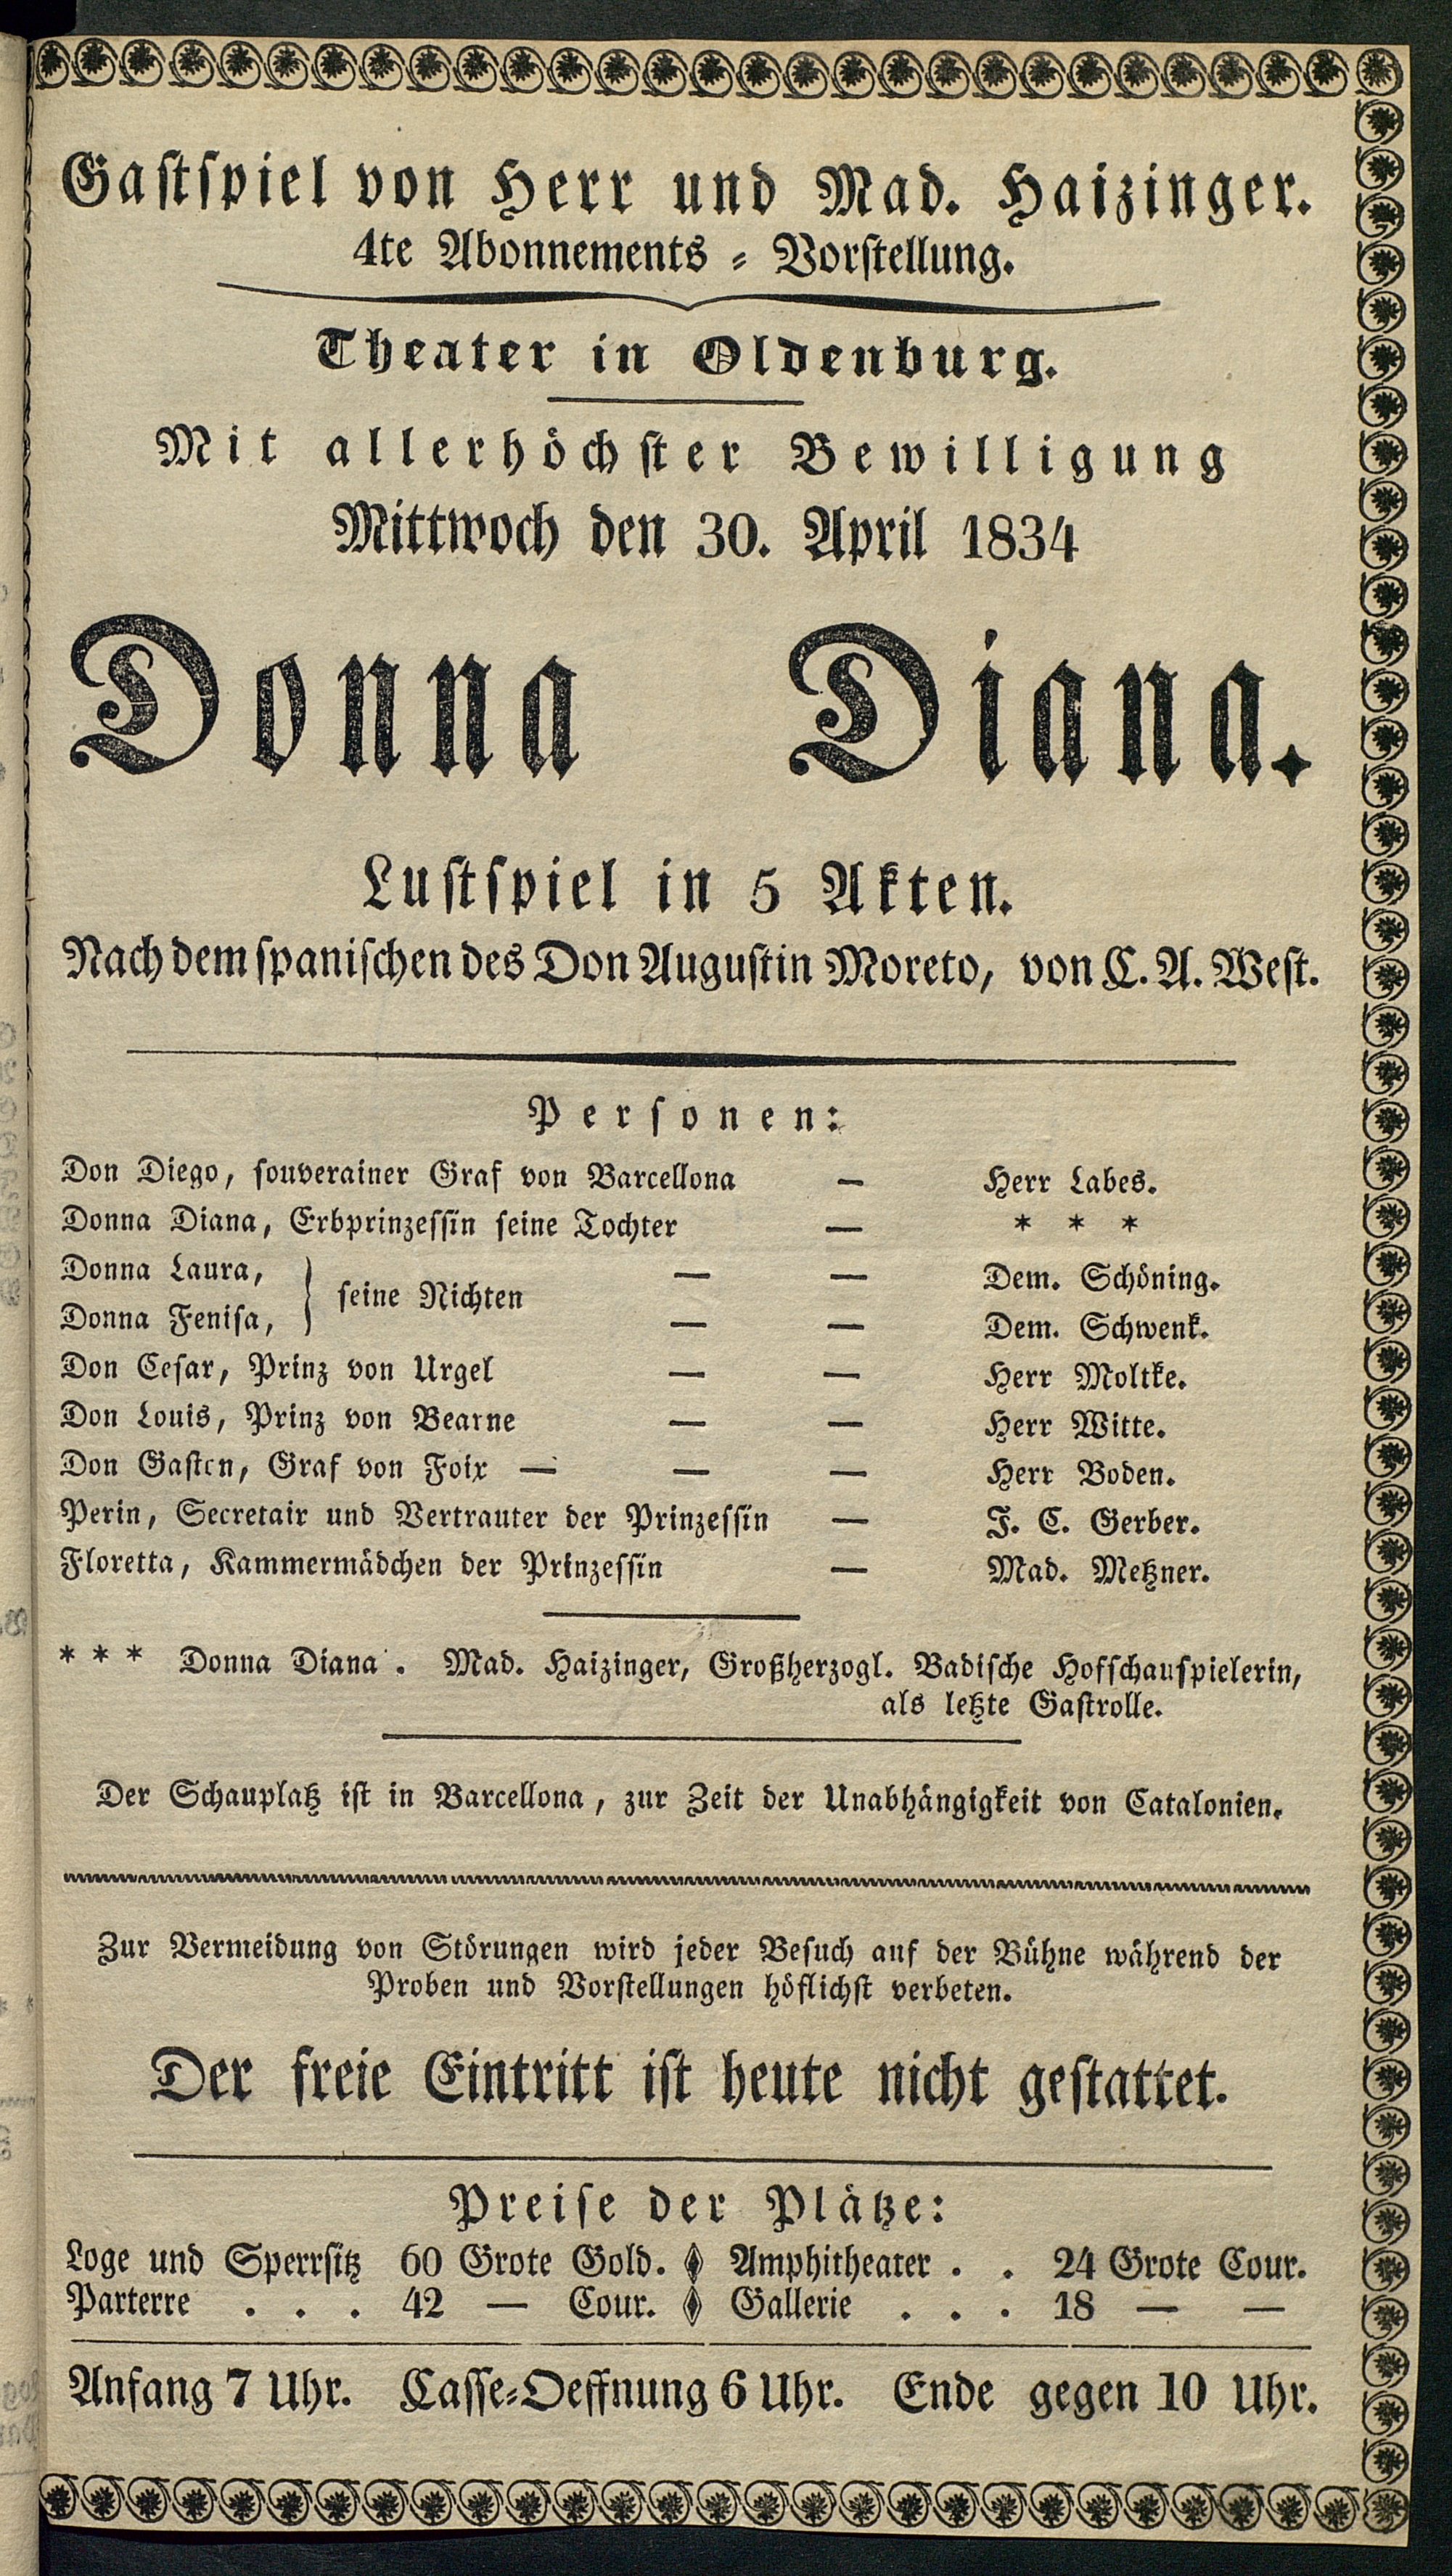 Gastspiel von Herr und Mad. Haizinger.
4te Abonnements-Vorstellung.
Theater in Oldenburg.
Mit allerhöchster Bewilligung
Mittwoch den 30. April 1834
Donna Diana.
Lustspiel in 5 Akten.
Nach dem spanischen des Don Augustin Moreto, von C. A. West.
Personen:
Don Diego, souverainer Graf von Barcellona — Herr Labes.
Donna Diana, Erbprinzessin seine Tochter — * * *
Donna Laura, } seine Nichten — — Dem. Schöning.
Donna Fenisa, } — — Dem. Schwenk.
Don Cesar, Prinz von Urgel — — Herr Moltke.
Don Louis, Prinz von Bearne — — Herr Witte.
Don Gaston, Graf von Foix — — — Herr Boden.
Perin, Secretair und Vertrauter der Prinzessin — J. C. Gerber.
Floretta, Kammermädchen der Prinzessin — Mad. Metzner.
* * * Donna Diana . Mad. Haizinger, Großherzogl. Badische Hofschauspielerin,
als letzte Gastrolle.
Der Schauplatz ist in Barcellona, zur Zeit der Unabhängigkeit von Catalonien.
Zur Vermeidung von Störungen wird jeder Besuch auf der Bühne während der
Proben und Vorstellungen höflichst verbeten.
Der freie Eintritt ist heute nicht gestattet.
Preise der Plätze:
Loge und Sperrsitz 60 Grote Gold. Amphitheater . . 24 Grote Cour.
Parterre . . . 42 — Cour. Gallerie . . . 18 — —
Anfang 7 Uhr. Casse-Oeffnung 6 Uhr. Ende gegen 10 Uhr.